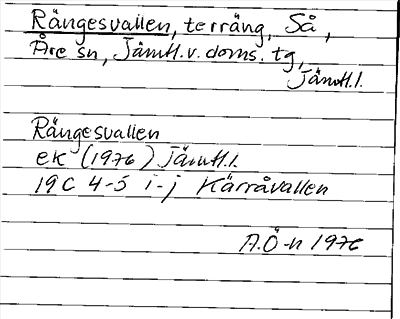 Rängesvallen, terräng, Så,
Åre sn, Jämtl.v. doms. tg,
Jämtl.l.
Rängesvallen
ek (1976) Jämtl.l.
19C 4-5 i-j Kärråvallen
A.Ö-n 1976